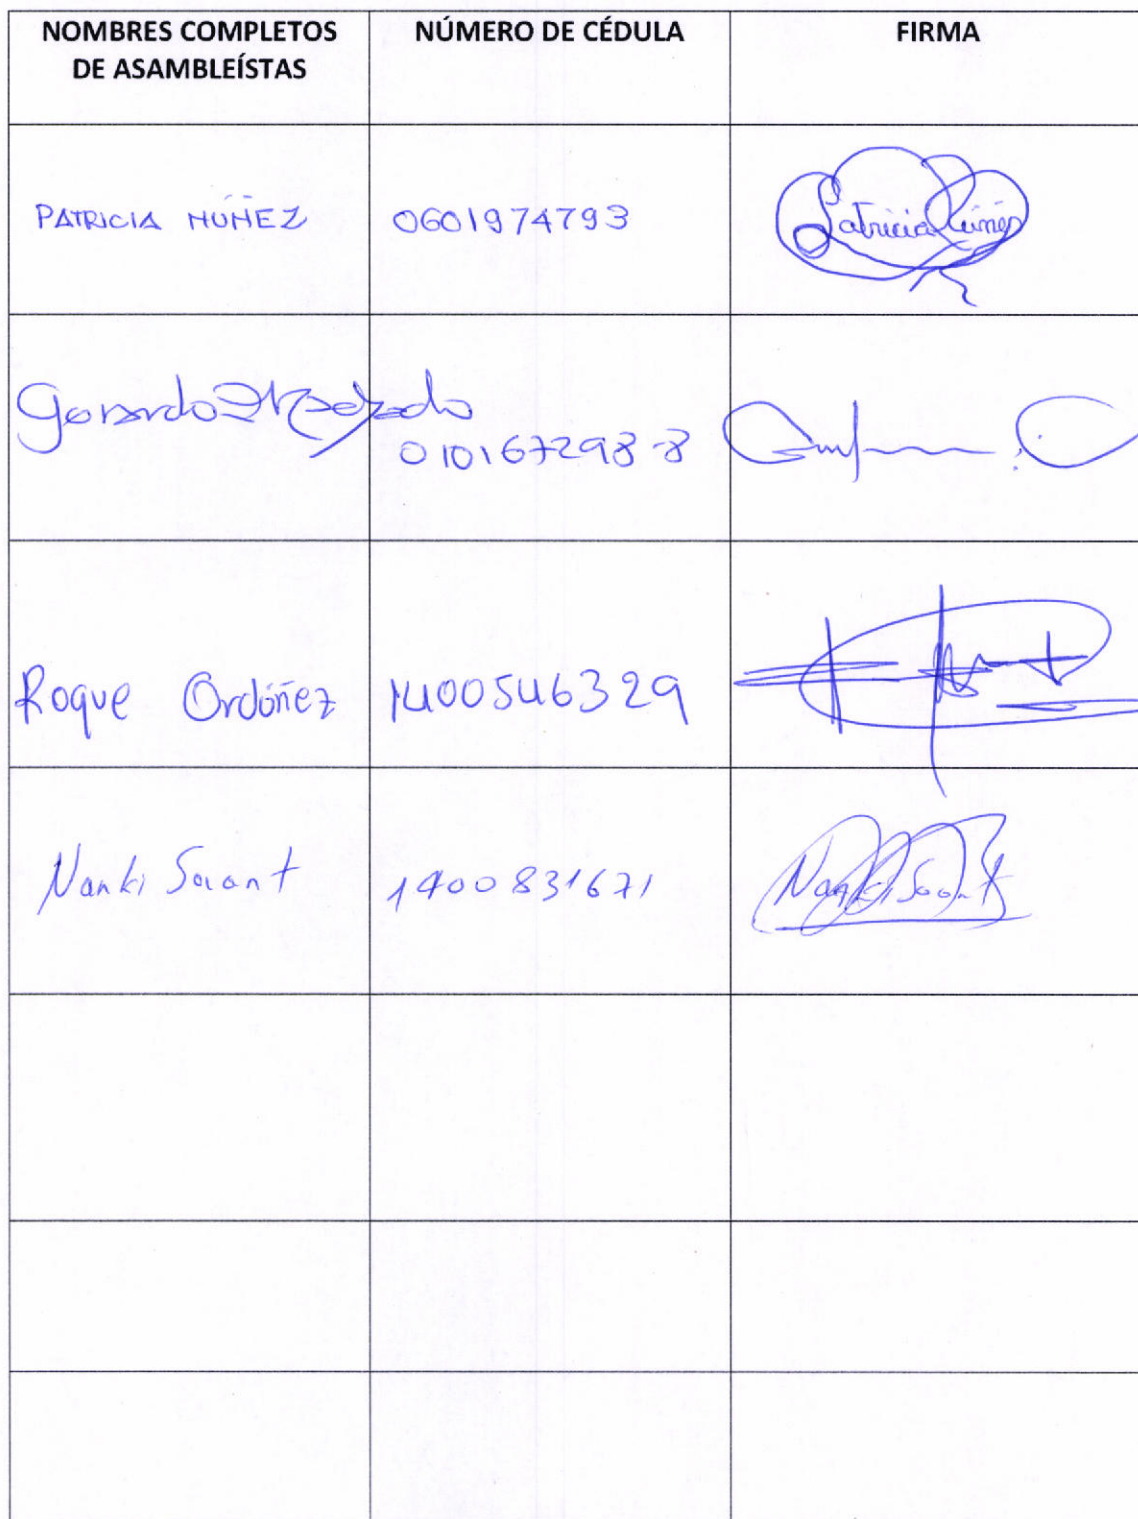 NOMBRES COMPLETOS
DE ASAMBLEÍSTAS
NÚMERO DE CÉDULA
FIRMA
PATRICIA NÚÑEZ
0601974793
Patricia Núñez
Gerardo Machado
010167298-8
Roque Ordóñez
1400546329
Nanki Saant
1400831671
Nanki Saant